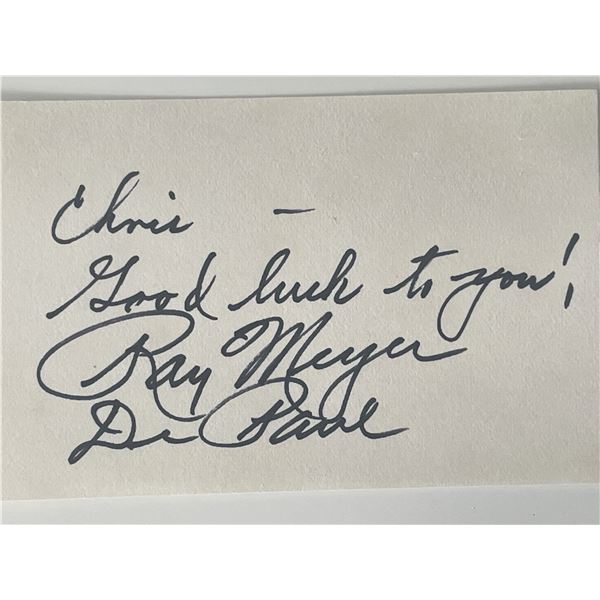 Chris —
Good luck to you!
Ray Meyer
De Paul